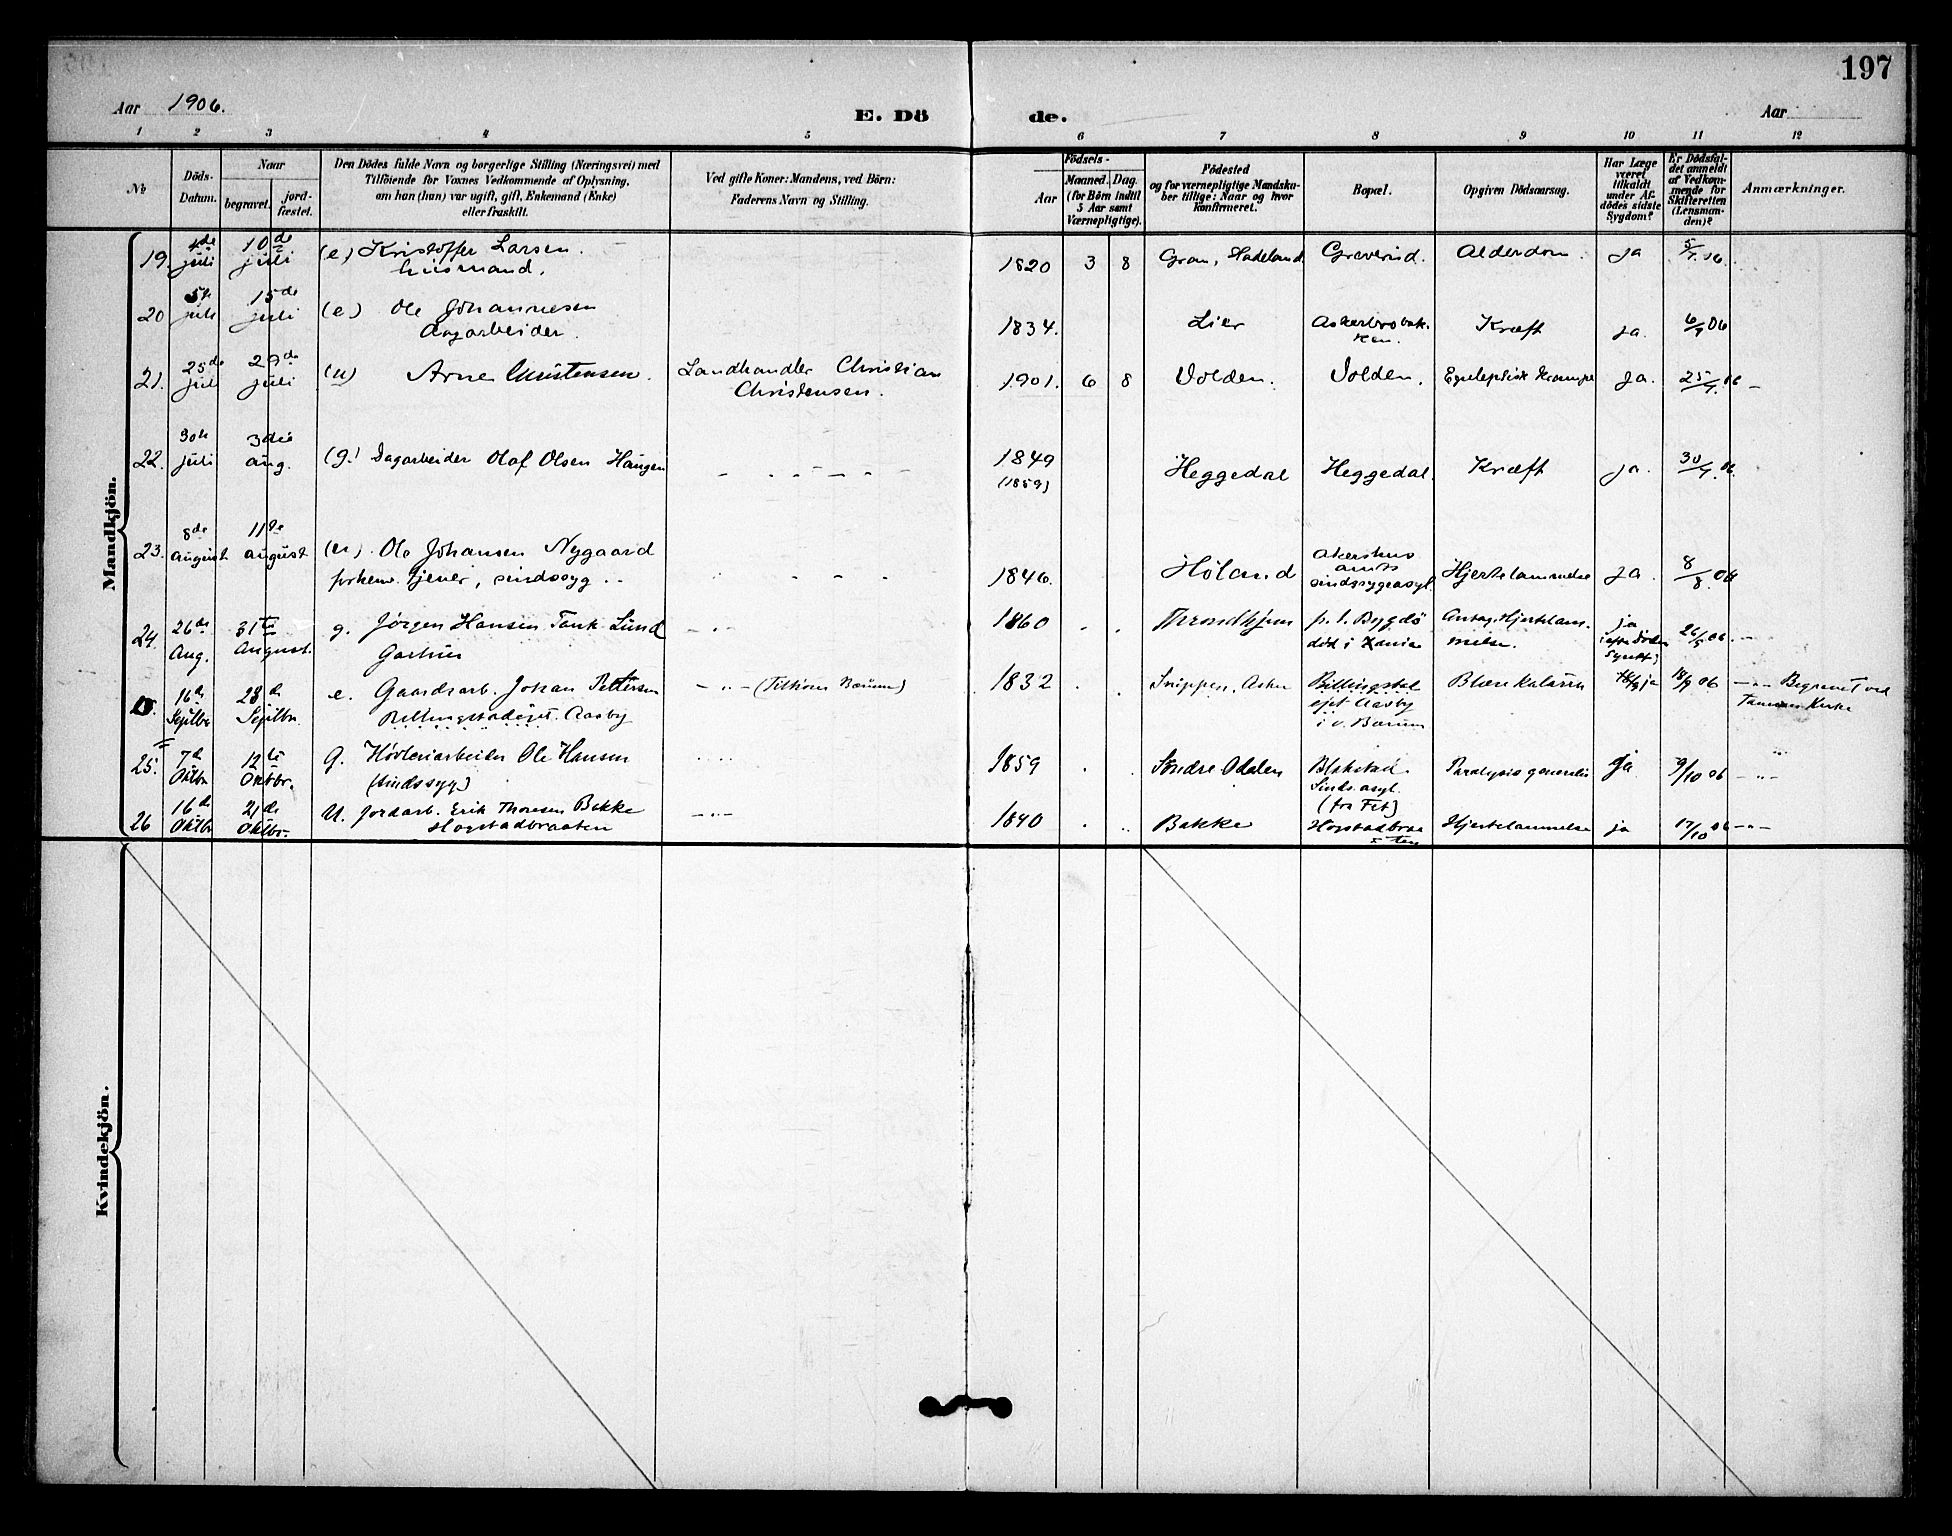 197
Aar 1906.
E. Döde.
Aar
1 2 3 4 5 6 7 8 9 10 11 12
No
Döds-
Datum.
Naar
begravet.
jord-
fæstet.
Den Dödes fulde Navn og borgerlige Stilling (Næringsvei) med
Tilföiende for Voxnes Vedkommende af Oplysning,
om han (hun) var ugift, gift, Enkemand (Enke)
eller fraskilt.
Ved gifte Koner: Mandens, ved Börn:
Faderens Navn og Stilling.
Födsels-
Aar
Maaned. Dag.
(for Börn indtil
5 Aar samt
Værnepligtige).
Födested
og for værnepligtige Mandska-
ber tillige: Naar og hvor
konfirmeret.
Bopæl.
Opgiven Dödsaarsag.
Har Læge
været
tilkaldt
under Af-
dödes sidste
Sygdom?
Er Dödsfal-
det anmeldt
af Vedkom-
mende for
Skifteretten
(Lensman-
den)?
Anmærkninger.
Mandkjön.
19. 4de juli 10de juli (e) Kristoffer Larsen.
husmand.
1820 3 8 Gran, Hadeland Greverud. Alderdom. ja 5/7.06.
20 5te juli 15de juli (e) Ole Johannesen
Dagarbeider.
1834. Lier Askerbrobak-
ken. Kræft ja. 6/7 06
21. 25de juli 29de juli (u) Arne Christensen. Landhandler Christian
Christensen.
1901. 6 8 Volden. Volden. Epileptisk Krampe ja. 25/7.06 -
22. 30te juli 3die aug. (g.) Dagarbeider Olaf Olsen Haugen
1849
(1859)
Heggedal Heggedal. Kræft ja. 30/7.06
23. 8de august 11te august (u). Ole Johansen Nygaard
forhenv. tjener, sindssyg
1846. Höland Akershus
amts
sindssygeasyl. Hjertelammelse ja. 8/8.06
24. 26de Aug. 31te August. g. Jörgen Hansen Tank Lund
Gartner
1860 Throndhjem p. t. Bygdö
död i Xania Antag. Hjertelam-
melse. ja 26/8 06. -"-
16de Septbr 23de Septbr. e. Gaardsarb. Johan Pettersen
Billingstadejet. Aasby
-"- (Tilhörer Bærum)
1832 Snippen, Asker Billingstad
ejet Aasby
i v. Bærum Blærekatarrh ja 18/9 06 -"- Begravet ved
Tanum Kirke
25. 7de Oktbr 12te Oktbr. G. Hövleriarbeider Ole Hansen
(sindssyg)
1859 Söndre Odalen Blakstad
Sinds.asyl.
(fra Fet) Paralysis generalis ja 9/10 06 -"-
26 16de Oktbr 21de Oktbr. U. Jordarb. Erik Thoresen Bakke
Hogstadbraaten
1840 Bakke Hogstadbraa-
ten Hjertelammelse ja 17/10 06 -"-
Kvindekjön.